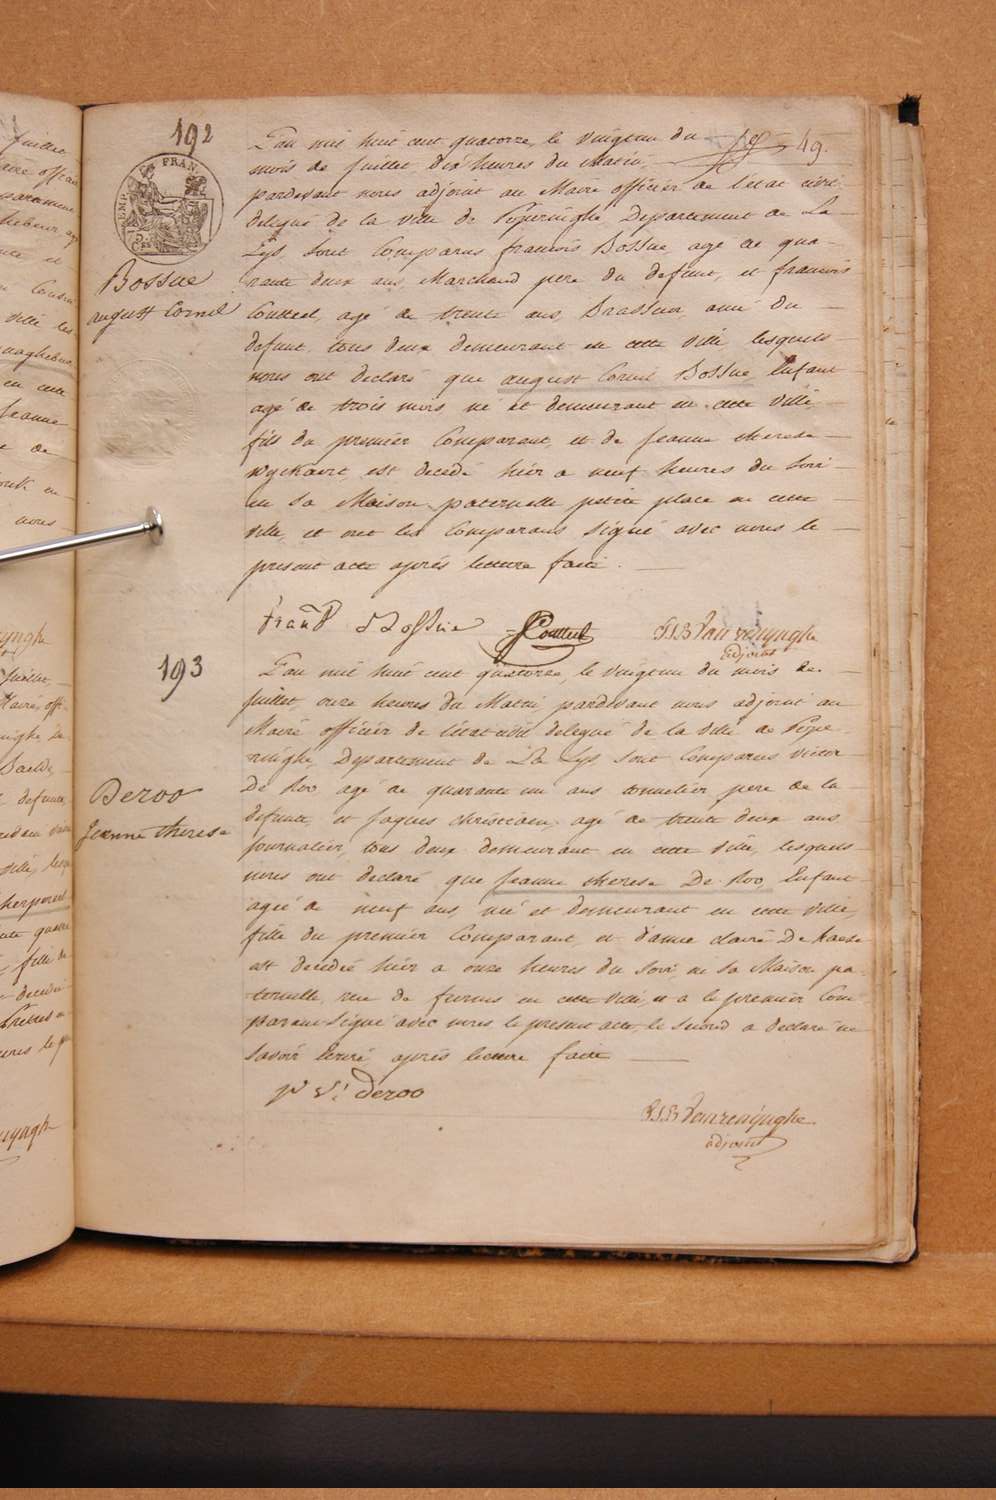 192
49.
L'an mil huit cent quatorze, le vingt un du
mois de Juillet, dix heures du Matin,
pardevant nous adjoint au Maire officier de l'etat civil
delegué de la ville de Poperinghe Departement de La
Lys, Sont Comparus francois Bossue agé de qua-
rante deux ans, Marchand pere du defunt, et francois
Coutteel, agé de trente ans, Brasseur, ami du
defunt, tous deux demeurant en cette ville lesquels
nous ont declaré que august Cornil Bossue, Enfant
agé de trois mois, né et demeurant en cette ville,
fils du premier Comparant, et de Jeanne therese
Wyckaert, est decedé hier a neuf heures du soir
en sa Maison paternelle petite place en cette
ville, et ont les Comparans signé avec nous le
present acte après lecture faite.
Bossue
august Cornil
EMP. FRAN.
Bossue
Coutteel
Vanrenynghe
adjoint
193
L'an mil huit cent quatorze, le vingt un du mois de
Juillet onze heures du Matin, pardevant nous adjoint au
Maire officier de l'état civil delegué de la ville de Pope-
ringhe, Departement de La Lys sont Comparus victor
De Roo agé de quarante un ans tonnelier pere de la
defunte, et Jaques Christiaen, agé de trente deux ans
journalier, tous deux demeurant en cette ville, lesquels
nous ont declaré que Jeanne therese De Roo, Enfant
agée de neuf ans, né et demeurant en cette ville,
fille du premier Comparant, et d'anne claire De
est decedée hier a onze heures du soir, en sa Maison pa-
ternelle, rue de furnes en cette ville, et a le premier Com-
parant signé avec nous le present acte, le second a declaré ne
savoir Ecrire après lecture faite
Deroo
Jeanne therese
deroo
Vanrenynghe
adjoint